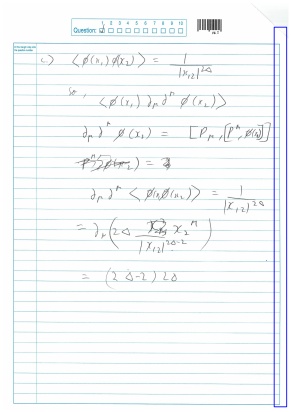 Question: 1 2 3 4 5 6 7 8 9 10
c) ⟨ϕ(x₁) ϕ(x₂)⟩ = 1/|x₁₂|^{2Δ}
So, ⟨ϕ(x₁) ∂_μ ∂^μ ϕ(x₂)⟩
∂_μ ∂^μ ϕ(x₂) = [P_μ, [P^μ, ϕ(x₂)]]
) =
∂_μ ∂^μ ⟨ϕ(x₁)ϕ(x₂)⟩ = 1/|x₁₂|^{2Δ}
= ∂_μ (2Δ x₂^μ / |x₁₂|^{2Δ-2})
= (2Δ-2) 2Δ